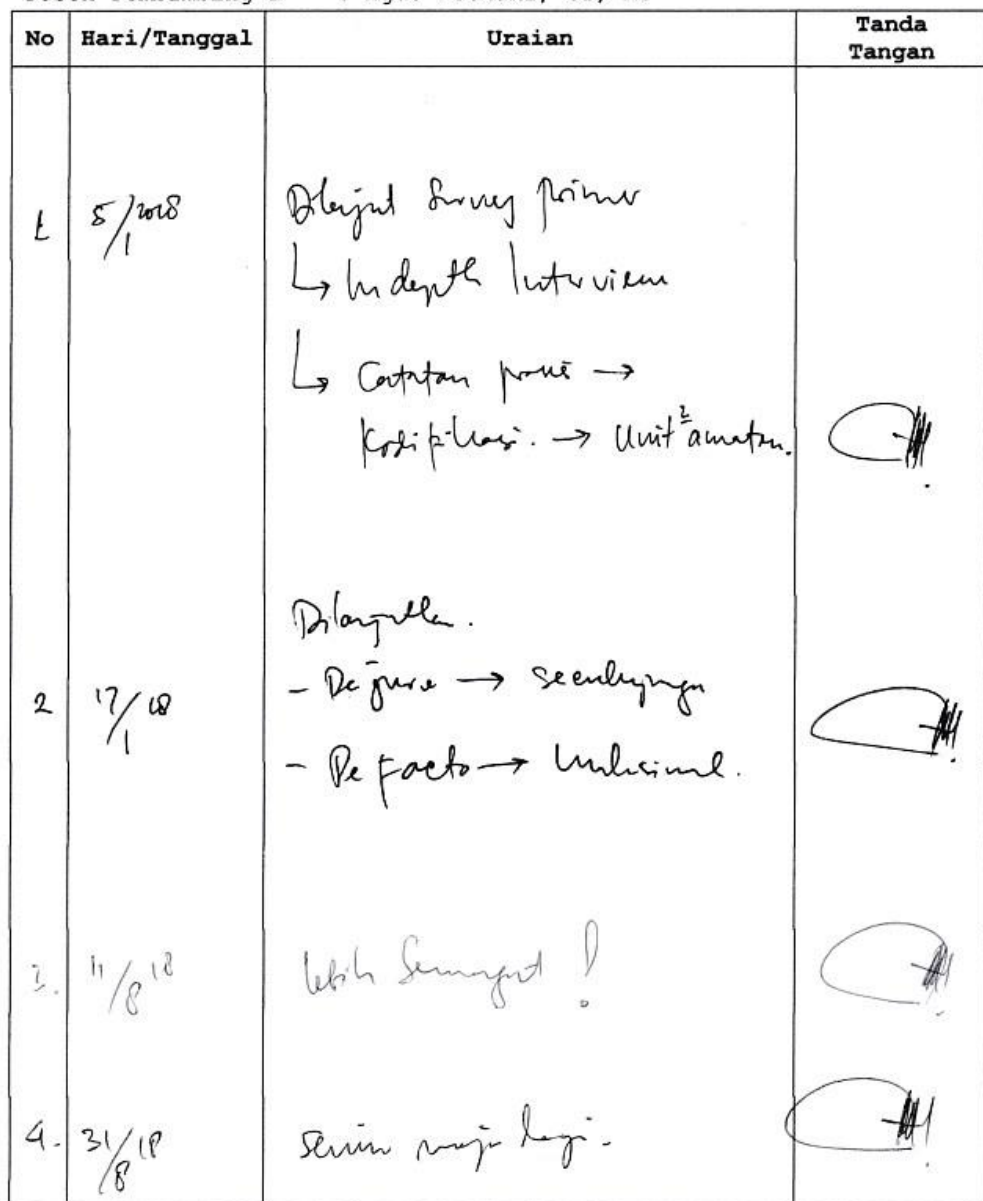 No Hari/Tanggal Uraian Tanda Tangan
1 5/1 2018 Dilanjut Survey primer
↳ In depth Interview
↳ Catatan →
Kodifikasi. → Unit² amatan.
Dilanjutkan.
2 17/1 18 - De jure →
- De facto →
3. 11/8 18 lebih Semangat !
4. 31/8 18 senin maju lagi.